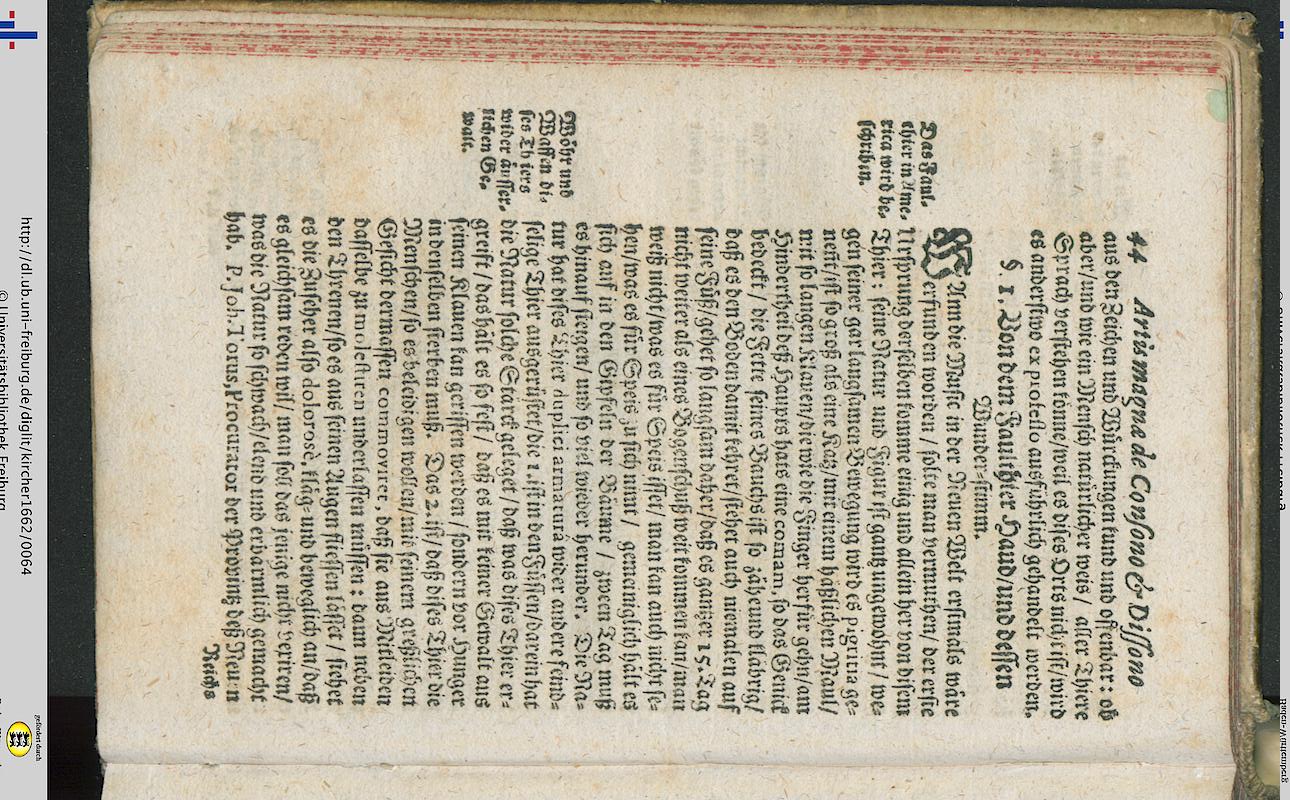 44 Artis magnæ de Consono & Dissono
aus den Zeichen und Würckungen kund und offenbar: ob
aber/und wie ein Mensch natürlicher weis/ aller Thiere
Sprach verstehen könne/weil es dises Orts nicht ist/wird
es anderstwo ex professo ausführlich gehandelt werden.
§. 1. Von dem Faulthier Haud/und dessen
Wunder-stimm.
WAnn die Music in der Neuen Welt erstmals wäre
erfunden worden / solte man vermuthen/ der erste
Ursprung derselben komme einig und allein her von disem
Thier: seine Natur und Figur ist gantz ungewohnt / we-
gen seiner gar langsamen Bewegung wird es pigritia ge-
nent/ist so groß als eine Katz/mit einem häßlichen Maul/
mit so langen Klauen/die wie die Finger herfür gehn/am
Hindertheil deß Haupts hats eine comam, so das Genick
bedeckt / die Fette seines Bauchs ist so zähe und kläbrig/
daß es den Boden damit kehret/stehet auch niemalen auf
seine Füß/gehet so langsam daher/daß es gantzer 15. Tag
nicht weiter als eines Bogenschuß weit kommen kan/man
weiß nicht/was es für Speis isset/ man kan auch nicht se-
hen/was es für Speis zu sich nimt / gemeiniglich hält es
sich auf in den Gipfeln der Bäume / zween Tag muß
es hinauf steigen/ und so viel wieder herunder. Die Na-
tur hat dises Thier duplici armaturâ wider andere feind-
selige Thier ausgerüstet/die 1. ist in den Füssen/darein hat
die Natur solche Starck geleget / daß was dises Thier er-
greift / das hält es so fest / daß es mit keiner Gewalt aus
seinen Klauen kan gerissen werden / sondern vor Hunger
in denselben sterben muß. Das 2. ist/ daß dises Thier die
Menschen/so es beleidigen wollen/mit seinem greßlichen
Gesicht dermassen commoviret, daß sie aus Mitleiden
dasselbe zu molestiren underlassen müssen: dann neben
den Threnen/so es aus seinen Augen fliessen lässet / siehet
es die Zuseher also dolorosè, kläg- und beweglich an/daß
es gleichsam reden wil/ man soll das jenige nicht vexiren/
was die Natur so schwach/elend und erbärmlich gemacht
hab. P. Joh. Torus, Procurator der Provintz deß Neuen
Reichs
Das Faul-
thier in Ame-
rica wird be-
schriben.
Wöhr und
Waffen di-
ses Thiers
wider äusser-
lichen Ge-
walt.
http://dl.ub.uni-freiburg.de/diglit/kircher1662/0064
© Universitätsbibliothek Freiburg
gefördert durch